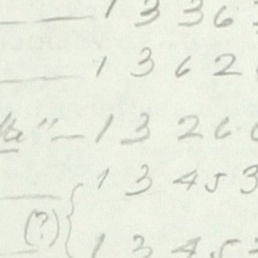 — 1 3 3 6
— 1 3 6 2
" — 1 3 2 6
1 3 4 5 3
(?) { 1 3 4 5